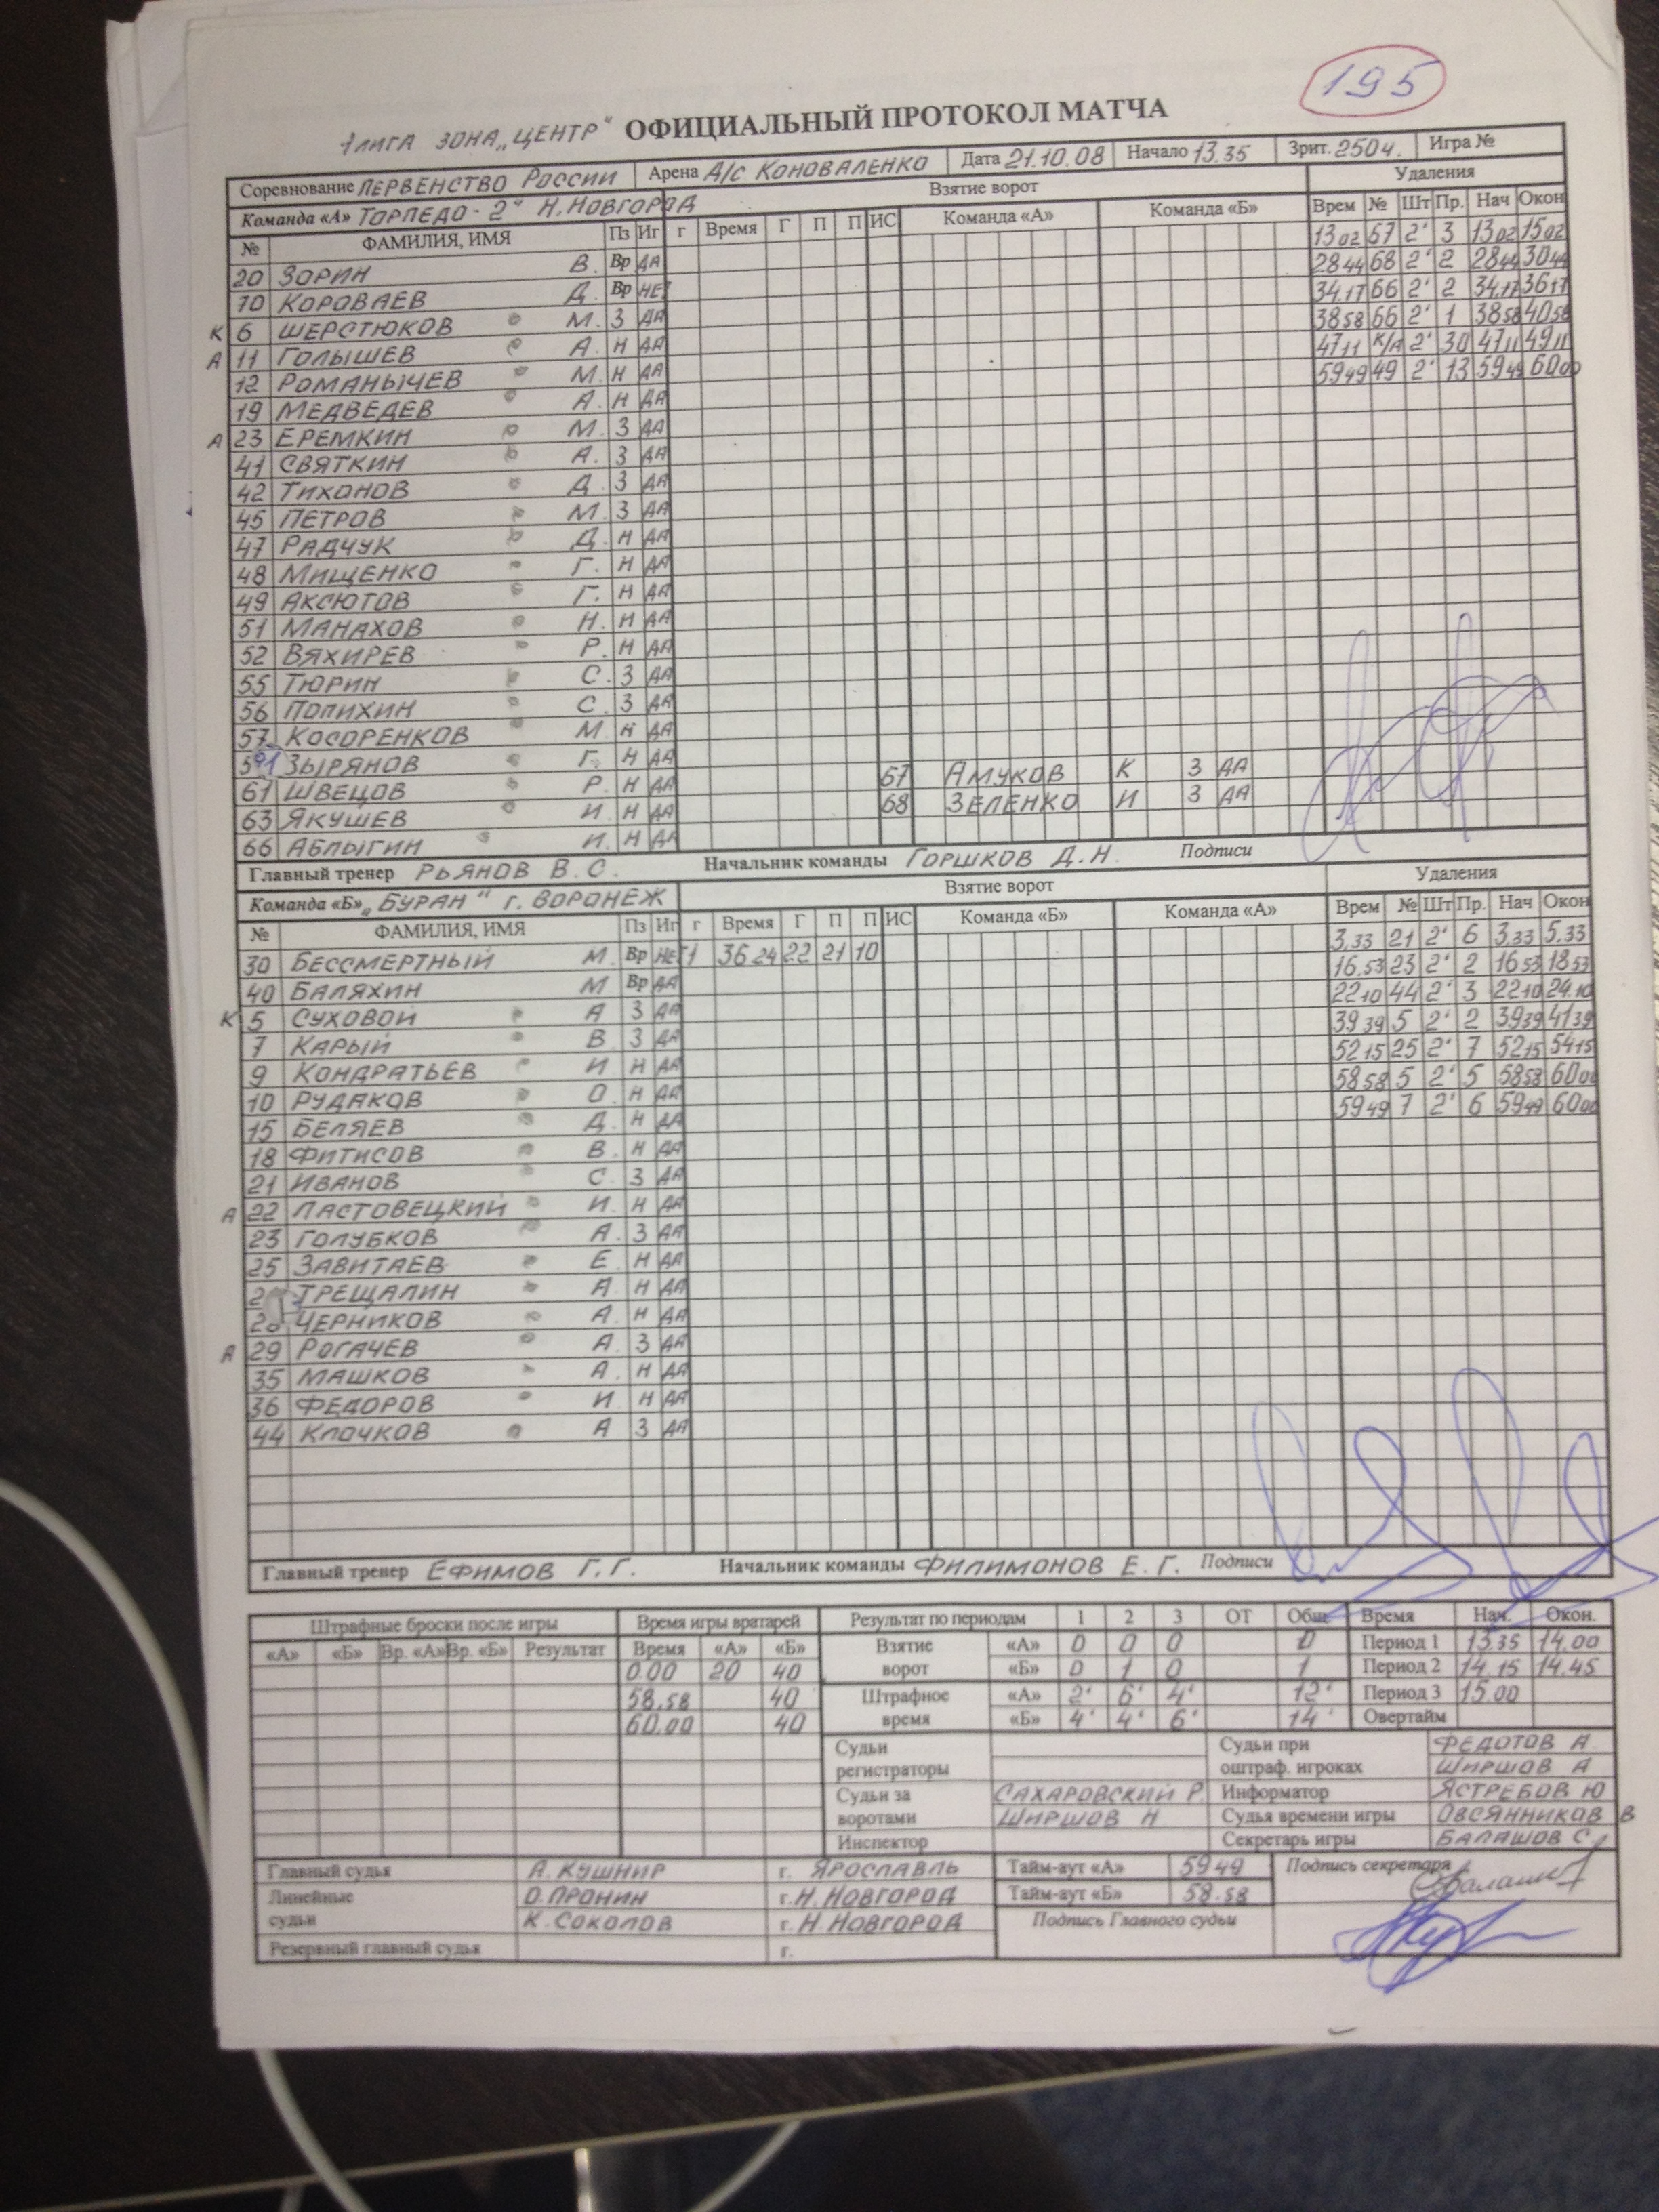 195
1 ЛИГА ЗОНА „ЦЕНТР" ОФИЦИАЛЬНЫЙ ПРОТОКОЛ МАТЧА
Соревнование ПЕРВЕНСТВО РОССИИ Арена Д/С КОНОВАЛЕНКО Дата 21.10.08 Начало 13.35 Зрит. 250ч. Игра №
Команда «А» ТОРПЕДО-2" Н.НОВГОРОД Взятие ворот Удаления
№ ФАМИЛИЯ, ИМЯ Пз Иг г Время Г П П ИС Команда «А» Команда «Б» Врем № Шт Пр. Нач Окон
13 02 67 2' 3 13 02 15 02
20 ЗОРИН В. Вр ДА 28 44 68 2' 2 28 44 30 44
10 КОРОВАЕВ Д. Вр НЕТ 34.17 66 2' 2 34.17 36 17
К 6 ШЕРСТЮКОВ М. З ДА 38 58 66 2' 1 38 58 40 58
А 11 ГОЛЫШЕВ А. Н ДА 47 11 К/А 2' 30 47 11 49 11
12 РОМАНЫЧЕВ М. Н ДА 59 49 49 2' 13 59 49 60 00
19 МЕДВЕДЕВ А. Н ДА
А 23 ЕРЕМКИН М. З ДА
41 СВЯТКИН А. З ДА
42 ТИХОНОВ Д. З ДА
45 ПЕТРОВ М. З ДА
47 РАДЧУК Д. Н ДА
48 МИЩЕНКО Г. Н ДА
49 АКСЮТОВ Г. Н ДА
51 МАНАХОВ Н. Н ДА
52 ВЯХИРЕВ Р. Н ДА
55 ТЮРИН С. З ДА
56 ПОПИХИН С. З ДА
57 КОСОРЕНКОВ М. Н ДА
ЗЫРЯНОВ Г. Н ДА 67 АМУКОВ К З ДА
61 ШВЕЦОВ Р. Н ДА 68 ЗЕЛЕНКО И З ДА
63 ЯКУШЕВ И. Н ДА
66 АБЛЫГИН И. Н ДА
Главный тренер РЬЯНОВ В.С. Начальник команды ГОРШКОВ Д.Н. Подписи
Команда «Б» „БУРАН" г. ВОРОНЕЖ Взятие ворот Удаления
№ ФАМИЛИЯ, ИМЯ Пз Иг г Время Г П П ИС Команда «Б» Команда «А» Врем № Шт Пр. Нач Окон
3.33 21 2' 6 3.33 5.33
30 БЕССМЕРТНЫЙ М. Вр НЕТ 1 36 24 22 21 10 16.53 23 2' 2 16 53 18 53
40 БАЛЯХИН М Вр ДА 22 10 44 2' 3 22 10 24.10
К 5 СУХОВОЙ А З ДА 39 39 5 2' 2 39 39 41 39
7 КАРЫЙ В З ДА 52 15 25 2' 7 52 15 54 15
9 КОНДРАТЬЕВ И Н ДА 58 58 5 2' 5 58 58 60 00
10 РУДАКОВ О. Н ДА 59 49 7 2' 6 59 49 60 00
15 БЕЛЯЕВ Д. Н ДА
18 ФИТИСОВ В. Н ДА
21 ИВАНОВ С. З ДА
А 22 ЛАСТОВЕЦКИЙ И. Н ДА
23 ГОЛУБКОВ А. З ДА
25 ЗАВИТАЕВ Е. Н ДА
ТРЕЩАЛИН А. Н ДА
28 ЧЕРНИКОВ А. Н ДА
А 29 РОГАЧЕВ А. З ДА
35 МАШКОВ А. Н ДА
36 ФЕДОРОВ И. Н ДА
44 КЛОЧКОВ А З ДА
Главный тренер ЕФИМОВ Г.Г. Начальник команды ФИЛИМОНОВ Е.Г. Подписи
Штрафные броски после игры Время игры вратарей Результат по периодам 1 2 3 ОТ Общ. Время Нач. Окон.
«А» «Б» Вр. «А» Вр. «Б» Результат Время «А» «Б» Взятие ворот «А» 0 0 0 0 Период 1 13.35 14.00
0.00 20 40 «Б» 0 1 0 1 Период 2 14.15 14.45
58.58 40 Штрафное время «А» 2' 6' 4' 12' Период 3 15.00
60.00 40 «Б» 4' 4' 6' 14' Овертайм
Судьи регистраторы Судьи при оштраф. игроках ФЕДОТОВ А.
ШИРШОВ А
Судьи за воротами САХАРОВСКИЙ Р. Информатор ЯСТРЕБОВ Ю
ШИРШОВ Н Судья времени игры ОВСЯННИКОВ В
Инспектор Секретарь игры БАЛАШОВ С.
Главный судья А. КУШНИР г. ЯРОСЛАВЛЬ Тайм-аут «А» 59 49 Подпись секретаря
Линейные судьи О. ПРОНИН г. Н.НОВГОРОД Тайм-аут «Б» 58.58
К. СОКОЛОВ г. Н.НОВГОРОД Подпись Главного судьи
Резервный главный судья г.